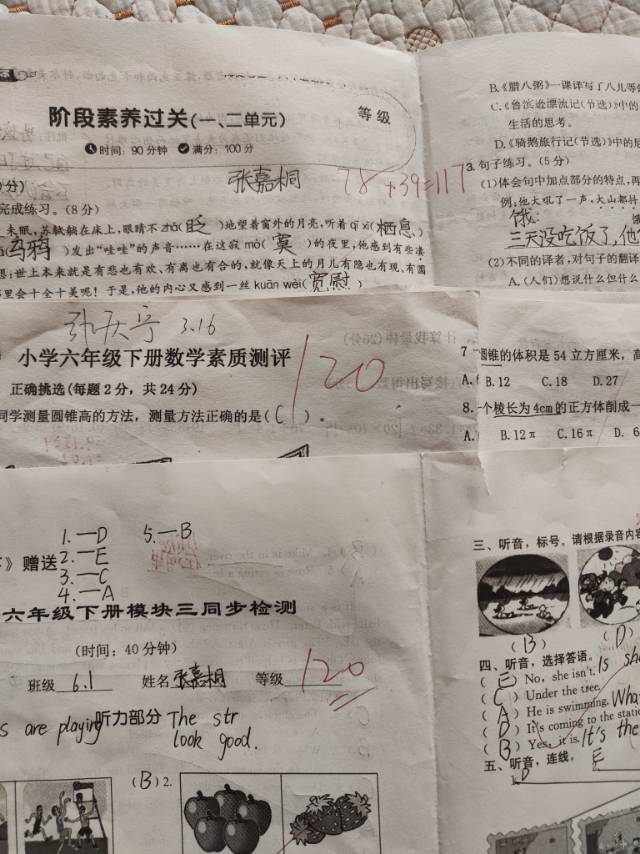 阶段素养过关(一、二单元)
等级
时间：90分钟 满分：100分
张嘉桐
78+39=117
分)
完成练习。(8分)
未眠,苏轼躺在床上,眼睛不zhǎ(眨)地望着窗外的月亮,听着qī xī(栖息)
(乌鸦)发出“哇哇”的声音……在这寂mò(寞)的夜里,他感到有些凄
想:世上本来就是有悲也有欢、有离也有合的,就像天上的月儿有隐也有现、有圆
里会十全十美呢!于是,他的内心又感到一丝kuān wèi(宽慰)
B.《腊八粥》一课详写了八儿等
C.《鲁滨逊漂流记(节选)》中的
生活的思考。
D.《骑鹅旅行记(节选)》中的尼
3.句子练习。(5分)
(1)体会句中加点部分的特点,再
例:他大吼了一声,大山都抖
饿:
三天没吃饭了,他
(2)不同的译者,对句子的翻译
A.(人们)想说什么但什么
3.16
小学六年级下册数学素质测评
120
正确挑选(每题2分,共24分)
同学测量圆锥高的方法,测量方法正确的是(C)。
7
圆锥的体积是54立方厘米,高
A.6 B.12 C.18 D.27
8.一个棱长为4cm的正方体削成一
A. B.12π C.16π D.6
1.—D 5.—B
》赠送 2.—E
3.—C
4.—A
六年级下册模块三同步检测
(时间:40分钟)
班级 6.1 姓名 张嘉桐 等级 120
s are playing 听力部分 The str
look good.
(B)2.
三、听音,标号。请根据录音内容
(B) (D)
四、听音,选择答语。
(E) No, she isn't. Is she
(C) Under the tree.
(A) He is swimming. Wha
(D) It's coming to the static
(B) Yes, it is. It's the
五、听音,连线。 E
D